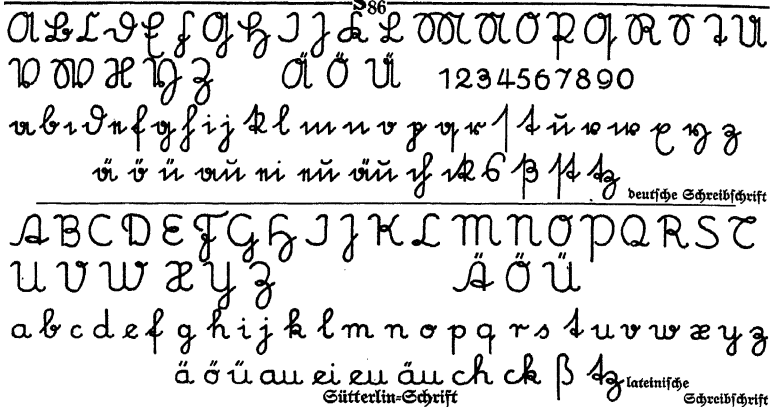 S86
A B C D E F G H I J K L M N O P Q R S T U
V W X Y Z Ä Ö Ü 1234567890
a b c d e f g h i j k l m n o p q r ſ t u v w x y z
ä ö ü au ei eu äu ch ck s ß ſt tz deutſche Schreibſchrift
A B C D E F G H I J K L M N O P Q R S T
U V W X Y Z Ä Ö Ü
a b c d e f g h i j k l m n o p q r s t u v w x y z
ä ö ü au ei eu äu ch ck ß tz lateiniſche Schreibſchrift
Sütterlin-Schrift